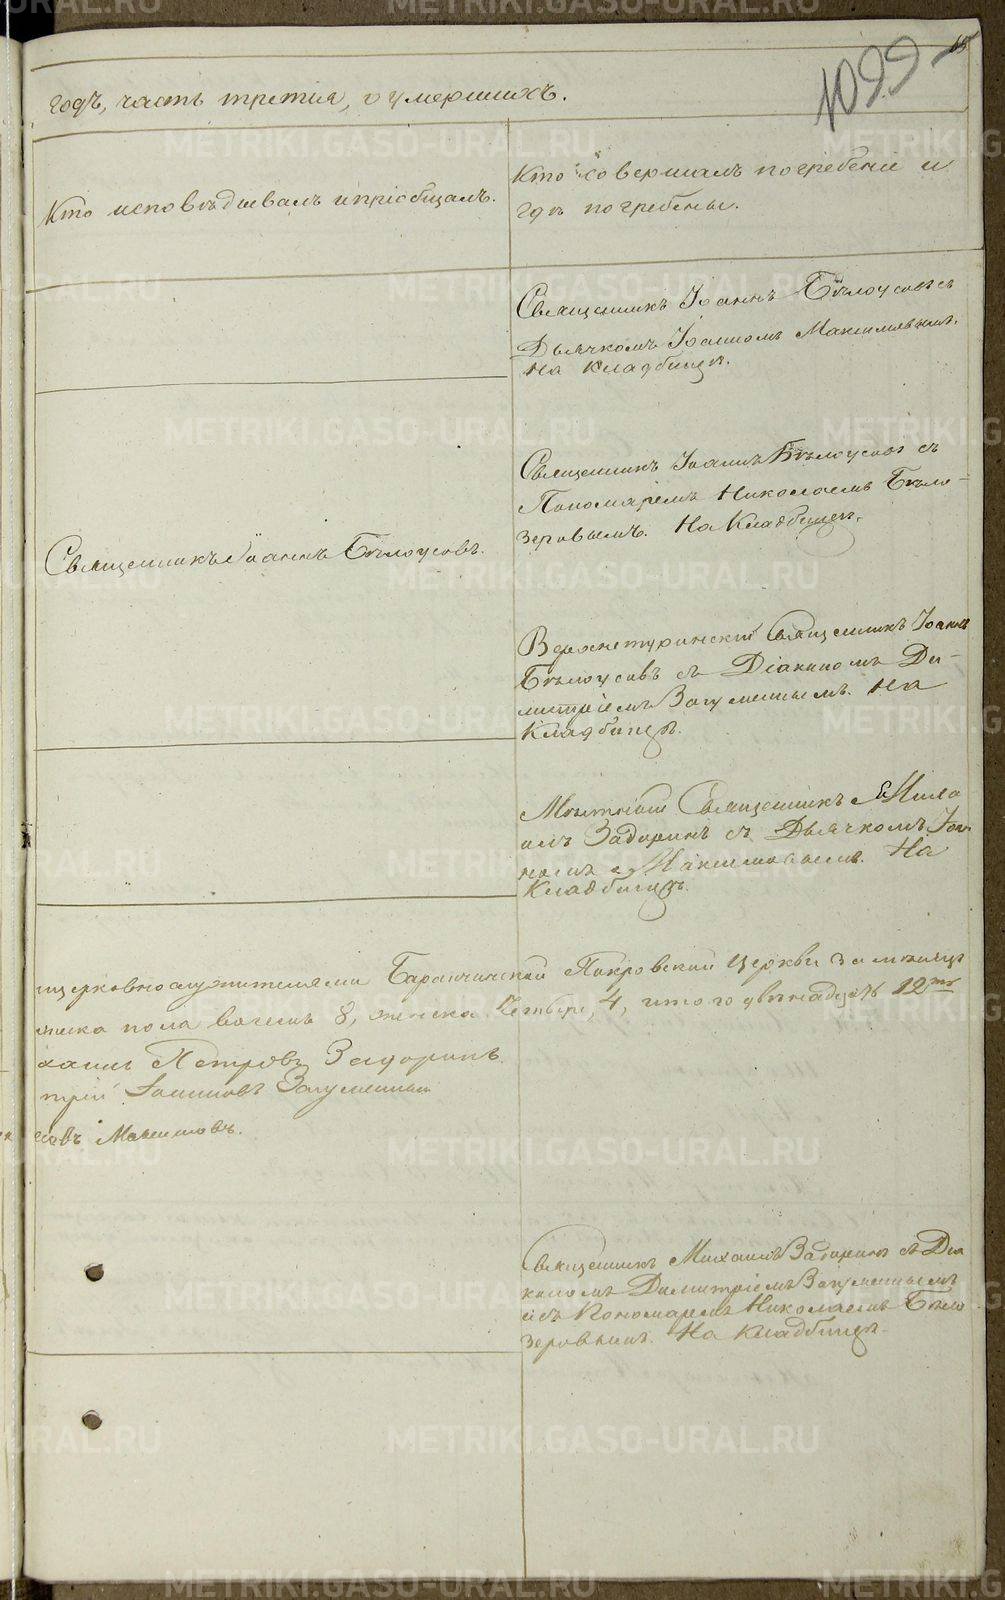 1099
годъ, часть третія, о умершихъ.
Кто исповѣдывалъ и пріобщалъ.
Кто совершалъ погребеніе и
гдѣ погребены.
Священникъ Іоаннъ Бѣлоусовъ съ
Дьячкомъ Іоанномъ Максимовымъ.
На Кладбищѣ.
Священникъ Іоаннъ Бѣлоусовъ.
Священникъ Іоаннъ Бѣлоусовъ съ
Пономаремъ Николаемъ Бѣло-
зеровымъ. На Кладбищѣ.
Верхнетуринскій Священникъ Іоаннъ
Бѣлоусовъ съ Діакономъ Ди-
митріемъ Загуменнымъ. На
Кладбищѣ.
Мѣстный Священникъ Миха
илъ Задоринъ съ Дьячкомъ Іоан
номъ Максимовымъ. На
Кладбищѣ.
щерковнослужителями Баранчинской Покровской Церкви за мѣсяцъ
мужска пола восемь 8, женска Четыре, 4, итого двѣнадцать 12ть
хаилъ Петровъ Задоринъ
трій Іоанновъ Загуменный
совъ Максимовъ.
Священникъ Михаилъ Задоринъ съ Діа
кономъ Димитріемъ Загуменнымъ
и съ Пономаремъ Николаемъ Бѣло
зеровымъ. На Кладбищѣ.
METRIKI.GASO-URAL.RU